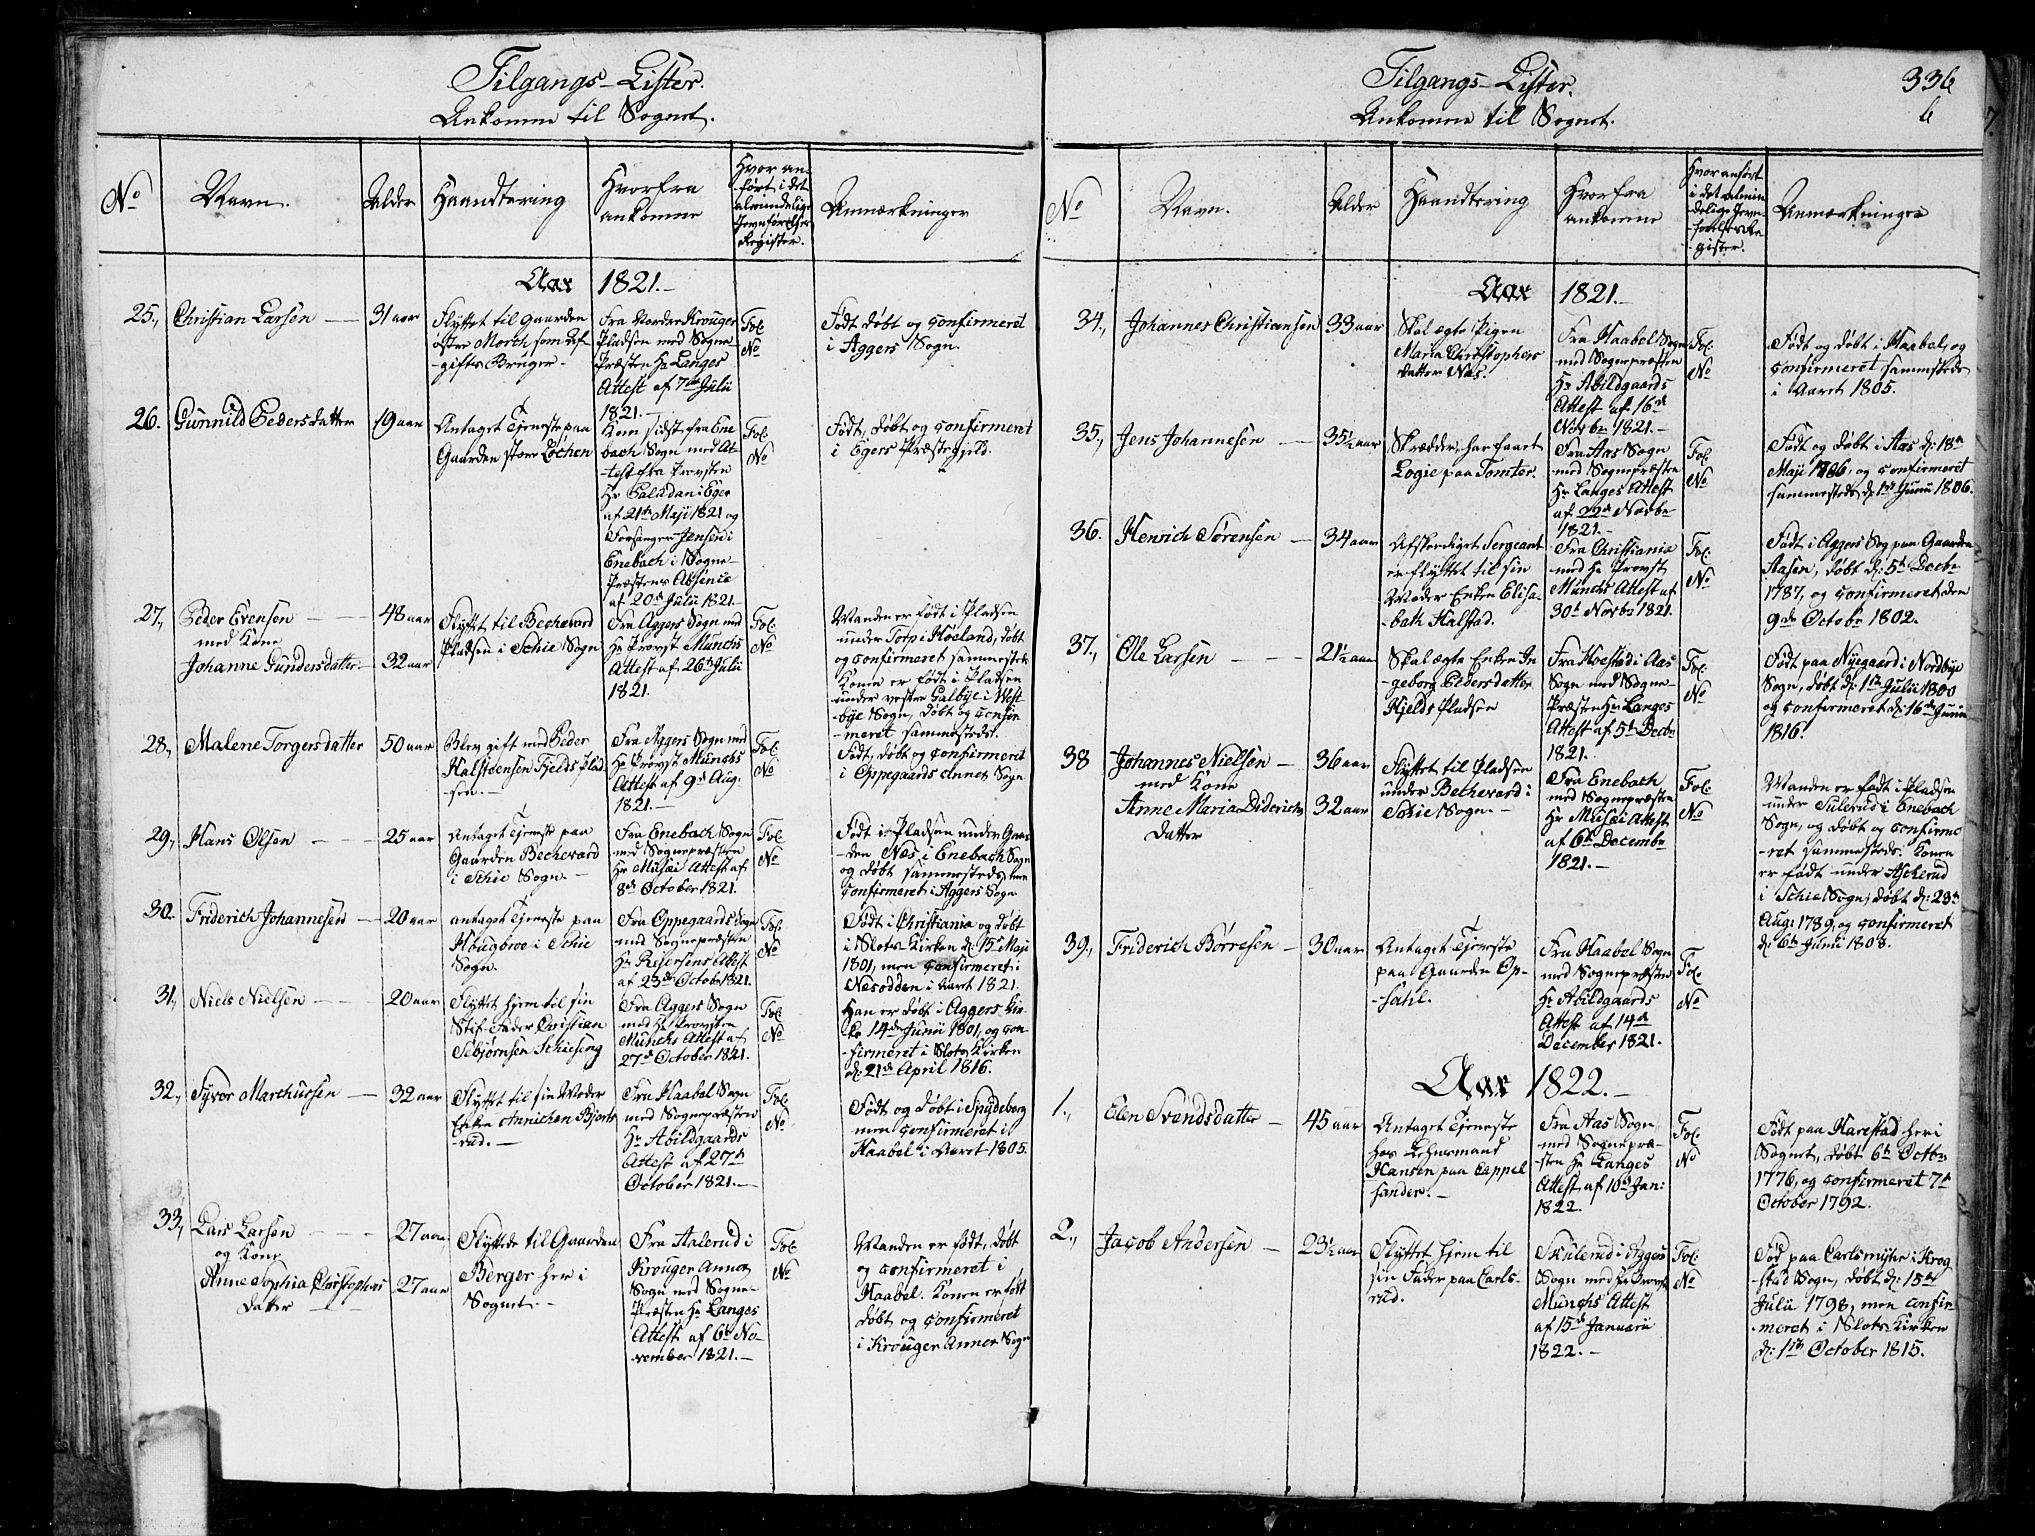 Tilgangs-Lister.
Ankomne til Sognet.
No
Navn.
Alder
Haandtering
Hvorfra
ankomne
Hvor an-
-ført i det
almindelige
Jevnførelses
Register.
Anmærkninger
Aar 1821.-
25.,
Christian Larsen
31 aar
Flyttet til Gaarden
østre Morch som Af-
-gifts Bruger-
Fra Nordre Krouger
Pladsen med Sogne-
Præsten Hr Langes
Attest af 7de Julii
1821.-
Fol.
No
Født døbt og Confirmeret
i Aggers Sogn.
26.
Gunnild Pedersdatter
19 aar
Antaget Tjeneste paa
Gaarden store Løchen
Kom sidst fra Ene
bach Sogn med At-
-test fra Provsten
Hr Paludan i Eger
af 21de Maji 1821 og
Forsanger Jensen i
Enebach i Sogne-
Præstens Absence
af 20de Julii 1821.-
Fol.
No
Født, døbt og Confirmeret
i Egers Præstegjeld.
27.,
Peder Evensen
med Kone
Johanne Gundersdatter
48 aar
32 aar
Flyttet til Bechevard
Pladsen i Schie Sogn
Fra Aggers Sogn med
Hr Provst Munchs
Attest af 26de Julii
1821.
Fol.
No
Manden er født i Pladsen
under Torp i Høeland, døbt
og Confirmeret sammesteds
Konen er født i Pladsen
under vestre Galbye i West-
bye Sogn, døbt og Confir-
-meret sammesteds.
28.,
Malene Torgersdatter
50 aar
Blev gift med Peder
Halsteensen Fjelds Plad-
sen.-
Fra Aggers Sogn med
Hr Provst Munchs
Attest af 9de Aug.
1821.-
Fol.
No
Født, døbt og Confirmeret
i Oppegaards Annex Sogn
29.,
Hans Olsen
25 aar
Antaget Tjeneste paa
Gaarden Bechevard
i Schie Sogn.-
Fra Enebach Sogn
med Sognepræsten
Hr Musæi Attest af
8de October 1821.
Fol.
No
Født i Pladsen under Gaar-
-den Næs i Enebach Sogn
og døbt sammesteds, men
Confirmeret i Aggers Sogn
30.
Friderich Johannesen
20 aar
antaget Tjeneste paa
Hougbroe i Schie
Sogn.
Fra Oppegaards Sogn
med Sognepræsten
Attest
af 23de October 1821.
Fol.
No
Født i Christiania og døbt
i Slots Kirken d: 15 Maji
1801, men Confirmeret i
Nesodden i Aaret 1821.
31.,
Niels Nielsen
20 aar
Flyttet hjem til sin
Stif-Fader Christian
Tebjørnsen Schieseng
Fra Aggers Sogn
med Hr Provsten
Munchs Attest af
27de October 1821.
Fol.
No
Han er døbt i Aggers Kir-
ke 14de Junii 1801, og Con-
-firmeret i Slots Kirken
d: 21de April 1816.
32.,
Syver Marthuesen
32 aar
Flyttet til sin Moder
Enken Annichen Bjerke-
-rud.-
Fra Haabel Sogn
med Sognepræsten
Hr Abildgaards
Attest af 27de
October 1821.-
Fol.
No
Født og døbt i Spydeberg
men Confirmeret i
Haabel i Aaret 1805.
33.,
Lars Larsen
og Kone
Anne Sophia Christophers
datter
27 aar
27 aar
Flyttede til Gaarden
Berger her i
Sognet.-
Fra Aalerud i
Krouger Annex
Sogn med Sogne-
Præsten Hr Langes
Attest af 6te No-
vember 1821.-
Fol.
No
Manden er født, døbt
og Confirmeret i
Haabel. Konen er født
døbt og Confirmeret
i Krouger Annex Sogn
Tilgangs-Lister.
Ankomne til Sognet.
336
b
7.
No
Navn.
Alder
Haandtering
Hvorfra
ankomne
Hvor anført
i det almin
delige Jevn-
førelses Re
-gister.
Anmærkninger
Aar 1821.-
34.,
Johannes Christiansen
33 aar
Skal ægte Pigen
Maria Christophers
datter Næs.
Fra Haabel Sogn
med Sognepræsten
Hr Abildgaards
Attest af 16de
Novbr 1821.-
Fol.
No
Født og døbt i Haabel, og
Confirmeret sammesteds
i Aaret 1805.
35.,
Jens Johannesen
35½ aar
Skrædder, har faaet
Logie paa Tomter.
Fra Aas Sogn
med Sognepræsten
Hr Langes Attest
af 22de Novbr
1821.-
Fol.
No
Født og døbt i Aas d: 18de
Maji 1786, og Confirmeret
sammesteds d: 1ste Junii 1806.
36.
Henrich Sørensen
34 aar
Afskediget Sergeant
er flyttet til sin
Moder Enken Elisa-
-beth Halstad.
Fra Christiania
med Hr Provst
Munchs Attest af
30te Novbr 1821.
Fol.
No
Født i Aggers Sog paa Gaarden
Aasen, døbt d: 5te Decbr
1787, og Confirmeret den
9de Octobr 1802.
37.,
Ole Larsen
21½ aar
Skal ægte Enken In-
-geborg Pedersdatter
Kjelds Pladsen
Fra Hoestad i Aas
Sogn med Sogne-
Præsten Hr Langes
Attest af 5te Decbr
1821.
Fol.
No
Født paa Nyegaard i Nordbye
Sogn, døbt d: 1ste Julii 1800
og Confirmeret d: 16de Junii
1816.
38
Johannes Nielsen
med Kone
Anne Maria Diderichs
datter
36 aar
32 aar
Flyttet til Pladsen
under Bechevard i
Schie Sogn.-
Fra Enebach
med Sognepræsten
Hr Musæi Attest
af 6te Decembr
1821.-
Fol.
No
Manden er født i Pladsen
under Sulerud i Enebach
Sogn, og døbt og Confirme-
-ret sammesteds. Konen
er født under Askerud
i Schie Sogn, døbt d: 23de
Aug: 1789, og Confirmeret
d: 6te Junii 1808.
39.,
Friderich Børresen
30 aar
Antaget Tjeneste
paa Gaarden Op-
-sahl.
Fra Haabel Sogn
med Sognepræsten
Hr Abildgaards
Attest af 14de
December 1821.
Fol.
No
Aar 1822.-
1.,
Elen Svendsdatter
45 aar
Antaget Tjeneste
hos Lehnsmand
Hansen paa Cappel
sander.-
Fra Aas Sogn
med Sognepræ-
-sten Hr Langes
Attest af 10de Jan:
1822.
Fol.
No
Født paa Harestad her i
Sognet, døbt 6te Octbr
1776, og Confirmeret 7de
October 1792.
2.,
Jacob Andersen
23½ aar
Flyttet hjem til
sin Fader paa Carls-
rud.
Skulerud i Aggers
Sogn med Hr Provst
Munchs Attest
af 15de Januarii
1822.-
Fol.
No
Fød paa Carlsmyhr i Krog-
stad Sogn, døbt d: 15de
Julii 1798, men Confir-
-meret i Slots-Kirken
d: 1ste October 1815.